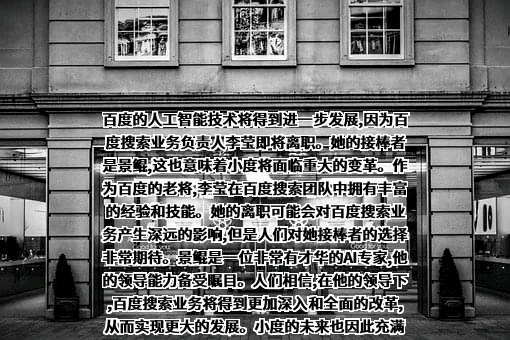 百度的人工智能技术将得到进一步发展,因为百
度搜索业务负责人李莹即将离职。她的接棒者
是景鲲,这也意味着小度将面临重大的变革。作
为百度的老将,李莹在百度搜索团队中拥有丰富
的经验和技能。她的离职可能会对百度搜索业
务产生深远的影响,但是人们对她接棒者的选择
非常期待。景鲲是一位非常有才华的AI专家,他
的领导能力备受瞩目。人们相信,在他的领导下
,百度搜索业务将得到更加深入和全面的改革,
从而实现更大的发展。小度的未来也因此充满